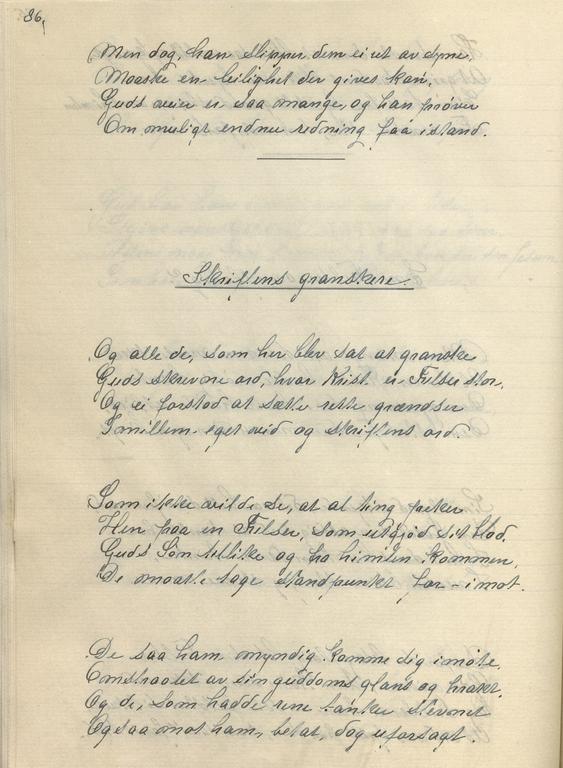 86,
Men dog, han slipper dem ei ut av syne,
Maaske en leilighet der gives kan,
Guds veier er saa mange, og han prøver
Om muligt endnu redning faa istand.
Skriftens granskere.
Og alle de, som her blev sat at granske
Guds skrevne ord, hvor Krist er Frelser stor,
Og ei forstod at sætte rette grændser
Imillem eget vid og skriftens ord.
Som ikke vilde se, at al ting peker
Hen paa en Frelser, som utgjød sit blod,
Guds Søn tillike og fra himlen kommen,
De maatte tage standpunkt for - imot.
De saa ham myndig komme dig imøte,
Omstraalet av sin guddoms glans og kraft,
Og de, som hadde rene tanker stevnet
Ogsaa mot ham, betat, dog uforsagt.